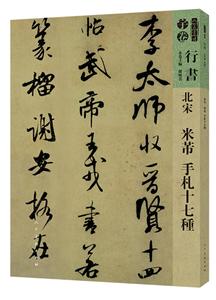 行書
北宋 米芾 手札十七種
李太師收晉賢十四
帖武帝王戎書若
篆籀謝安格在